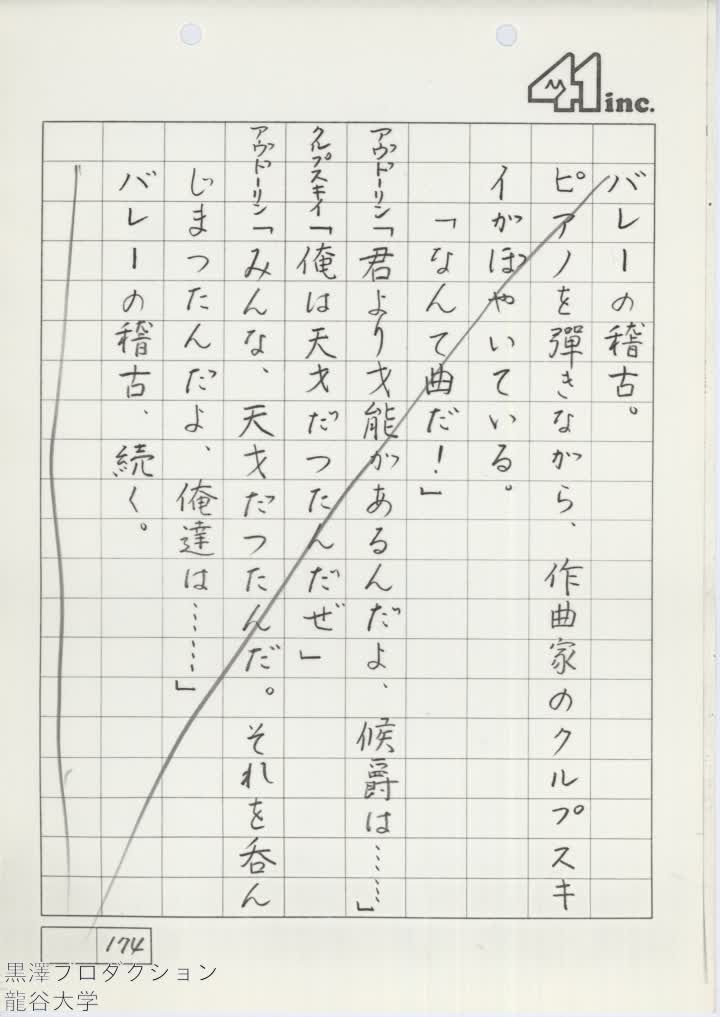 41 inc.
バレーの稽古。
ピアノを彈きながら、作曲家のクルプスキ
イがぼやいている。
「なんて曲だ！」
アヴドーリン「君より才能があるんだよ、候爵は……」
クルプスキイ「俺は天才だつたんだぜ」
アヴドーリン「みんな、天才だつたんだ。それを呑ん
じまつたんだよ、俺達は……」
バレーの稽古、続く。
174
黒澤プロダクション
龍谷大学